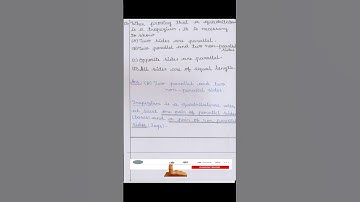 When proving that a quadrilateral
is a trapezium, it is necessary
to show
(A) Two sides are parallel.
(B) Two parallel and two non-parallel
sides
(C) Opposite sides are parallel.
(D) All sides are of equal length.
Ans: (B) Two parallel and two
non-parallel sides.
Trapezium is a quadrilateral with
at least one pair of parallel sides
and pair of non parallel
sides legs